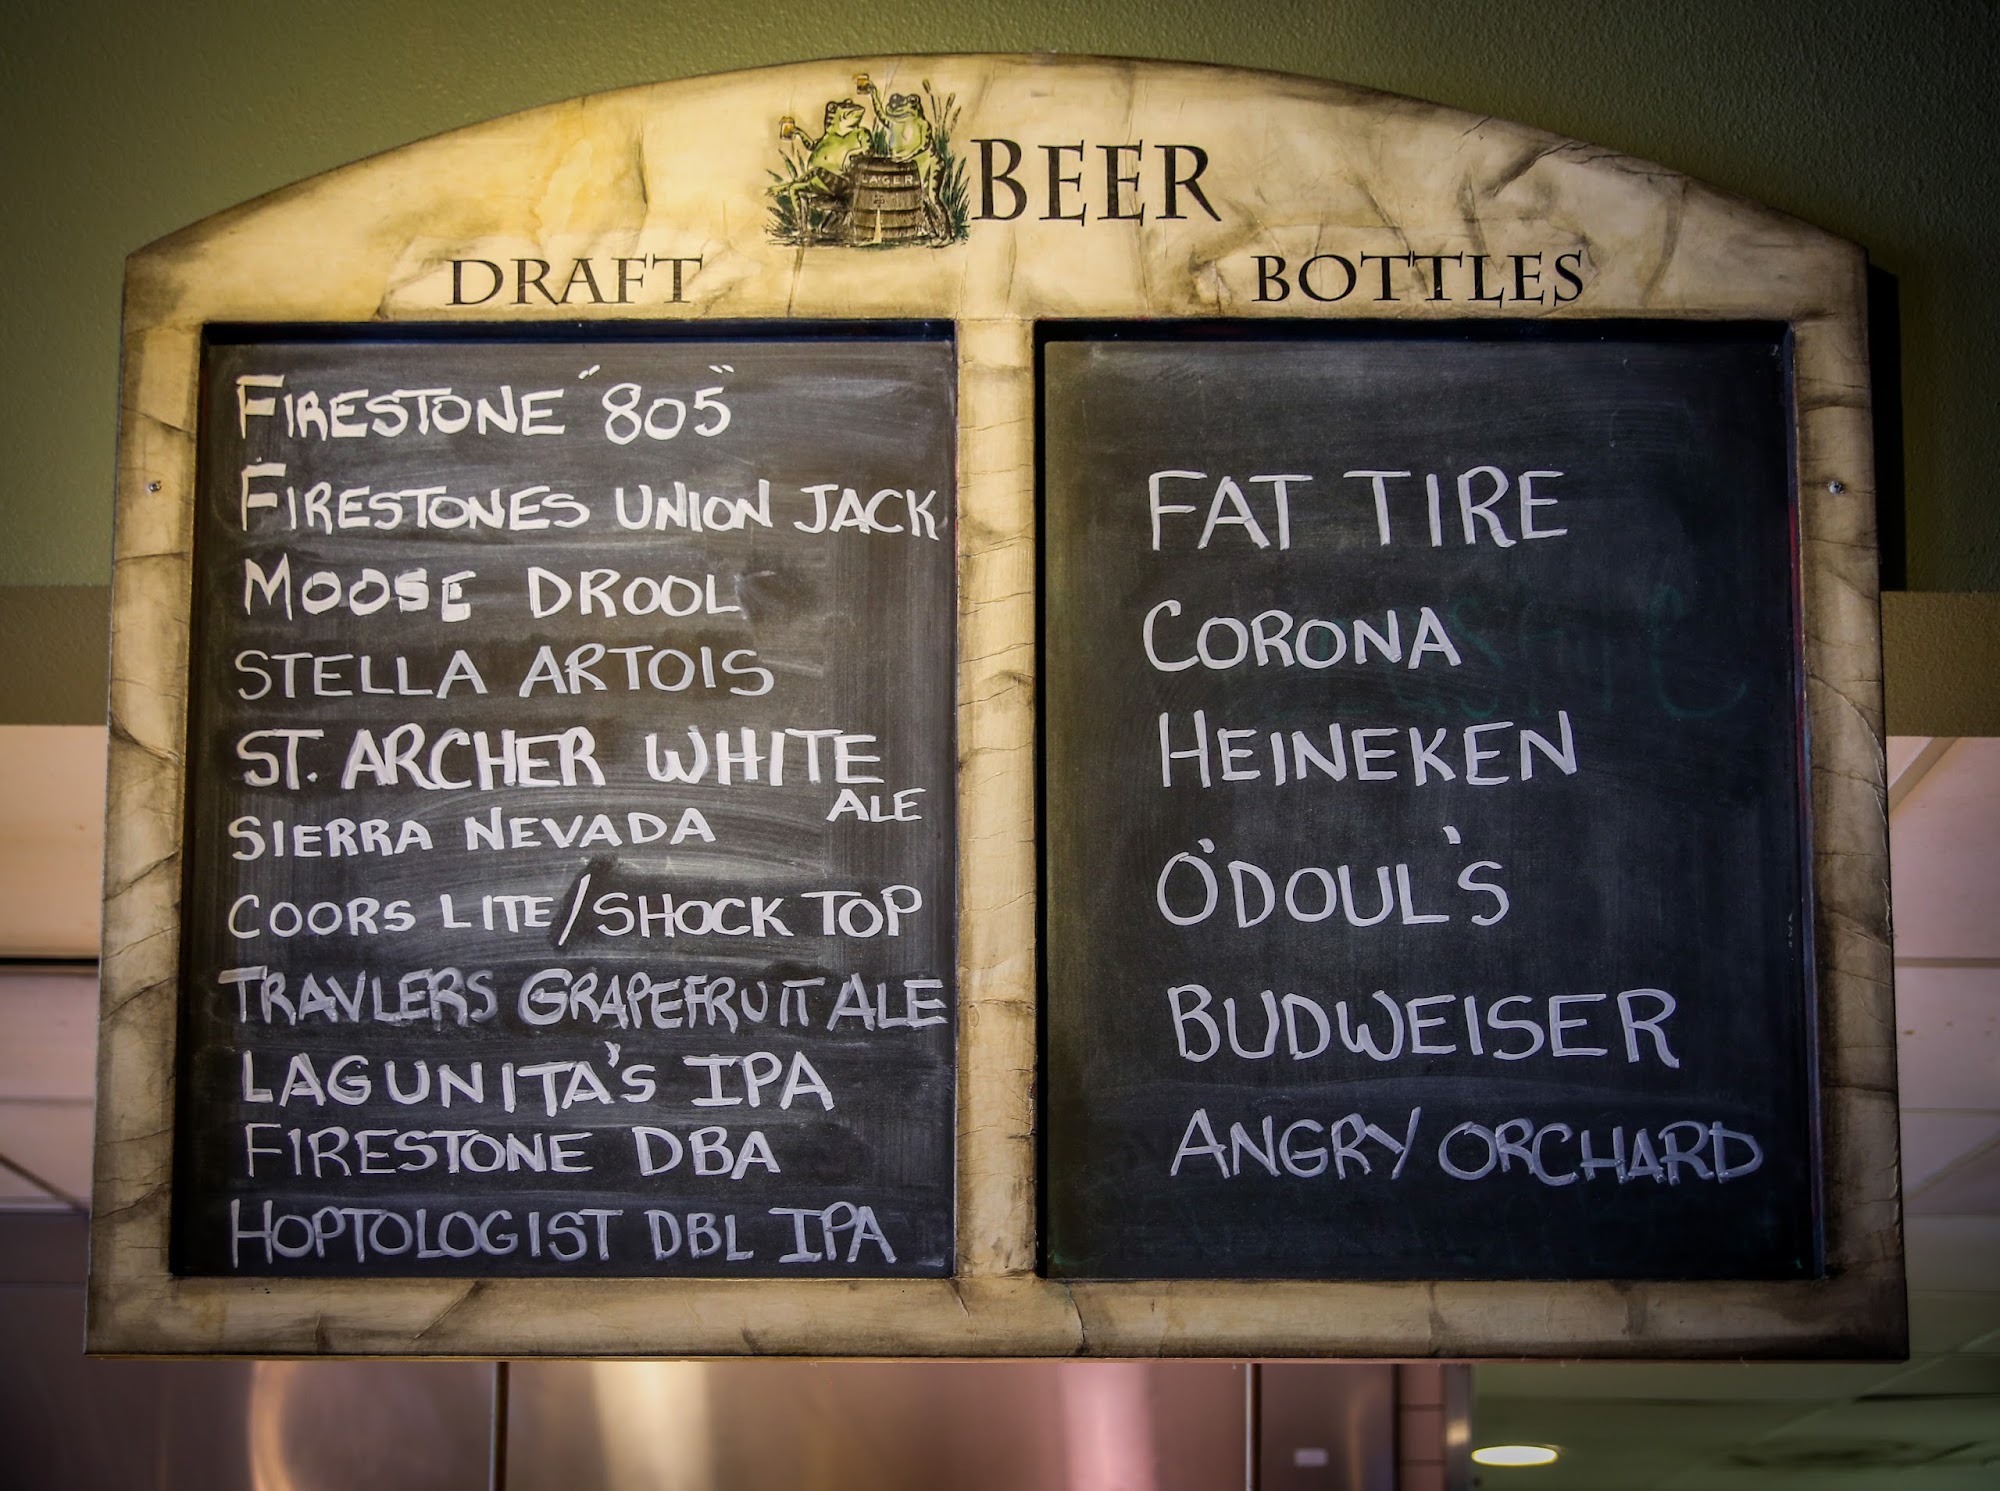 LAGER
BEER
DRAFT
FIRESTONE "805"
FIRESTONES UNION JACK
MOOSE DROOL
STELLA ARTOIS
ST. ARCHER WHITE
ALE
SIERRA NEVADA
COORS LITE/SHOCK TOP
TRAVLERS GRAPEFRUIT ALE
LAGUNITA'S IPA
FIRESTONE DBA
HOPTOLOGIST DBL IPA
BOTTLES
FAT TIRE
CORONA
HEINEKEN
O'DOUL'S
BUDWEISER
ANGRY ORCHARD